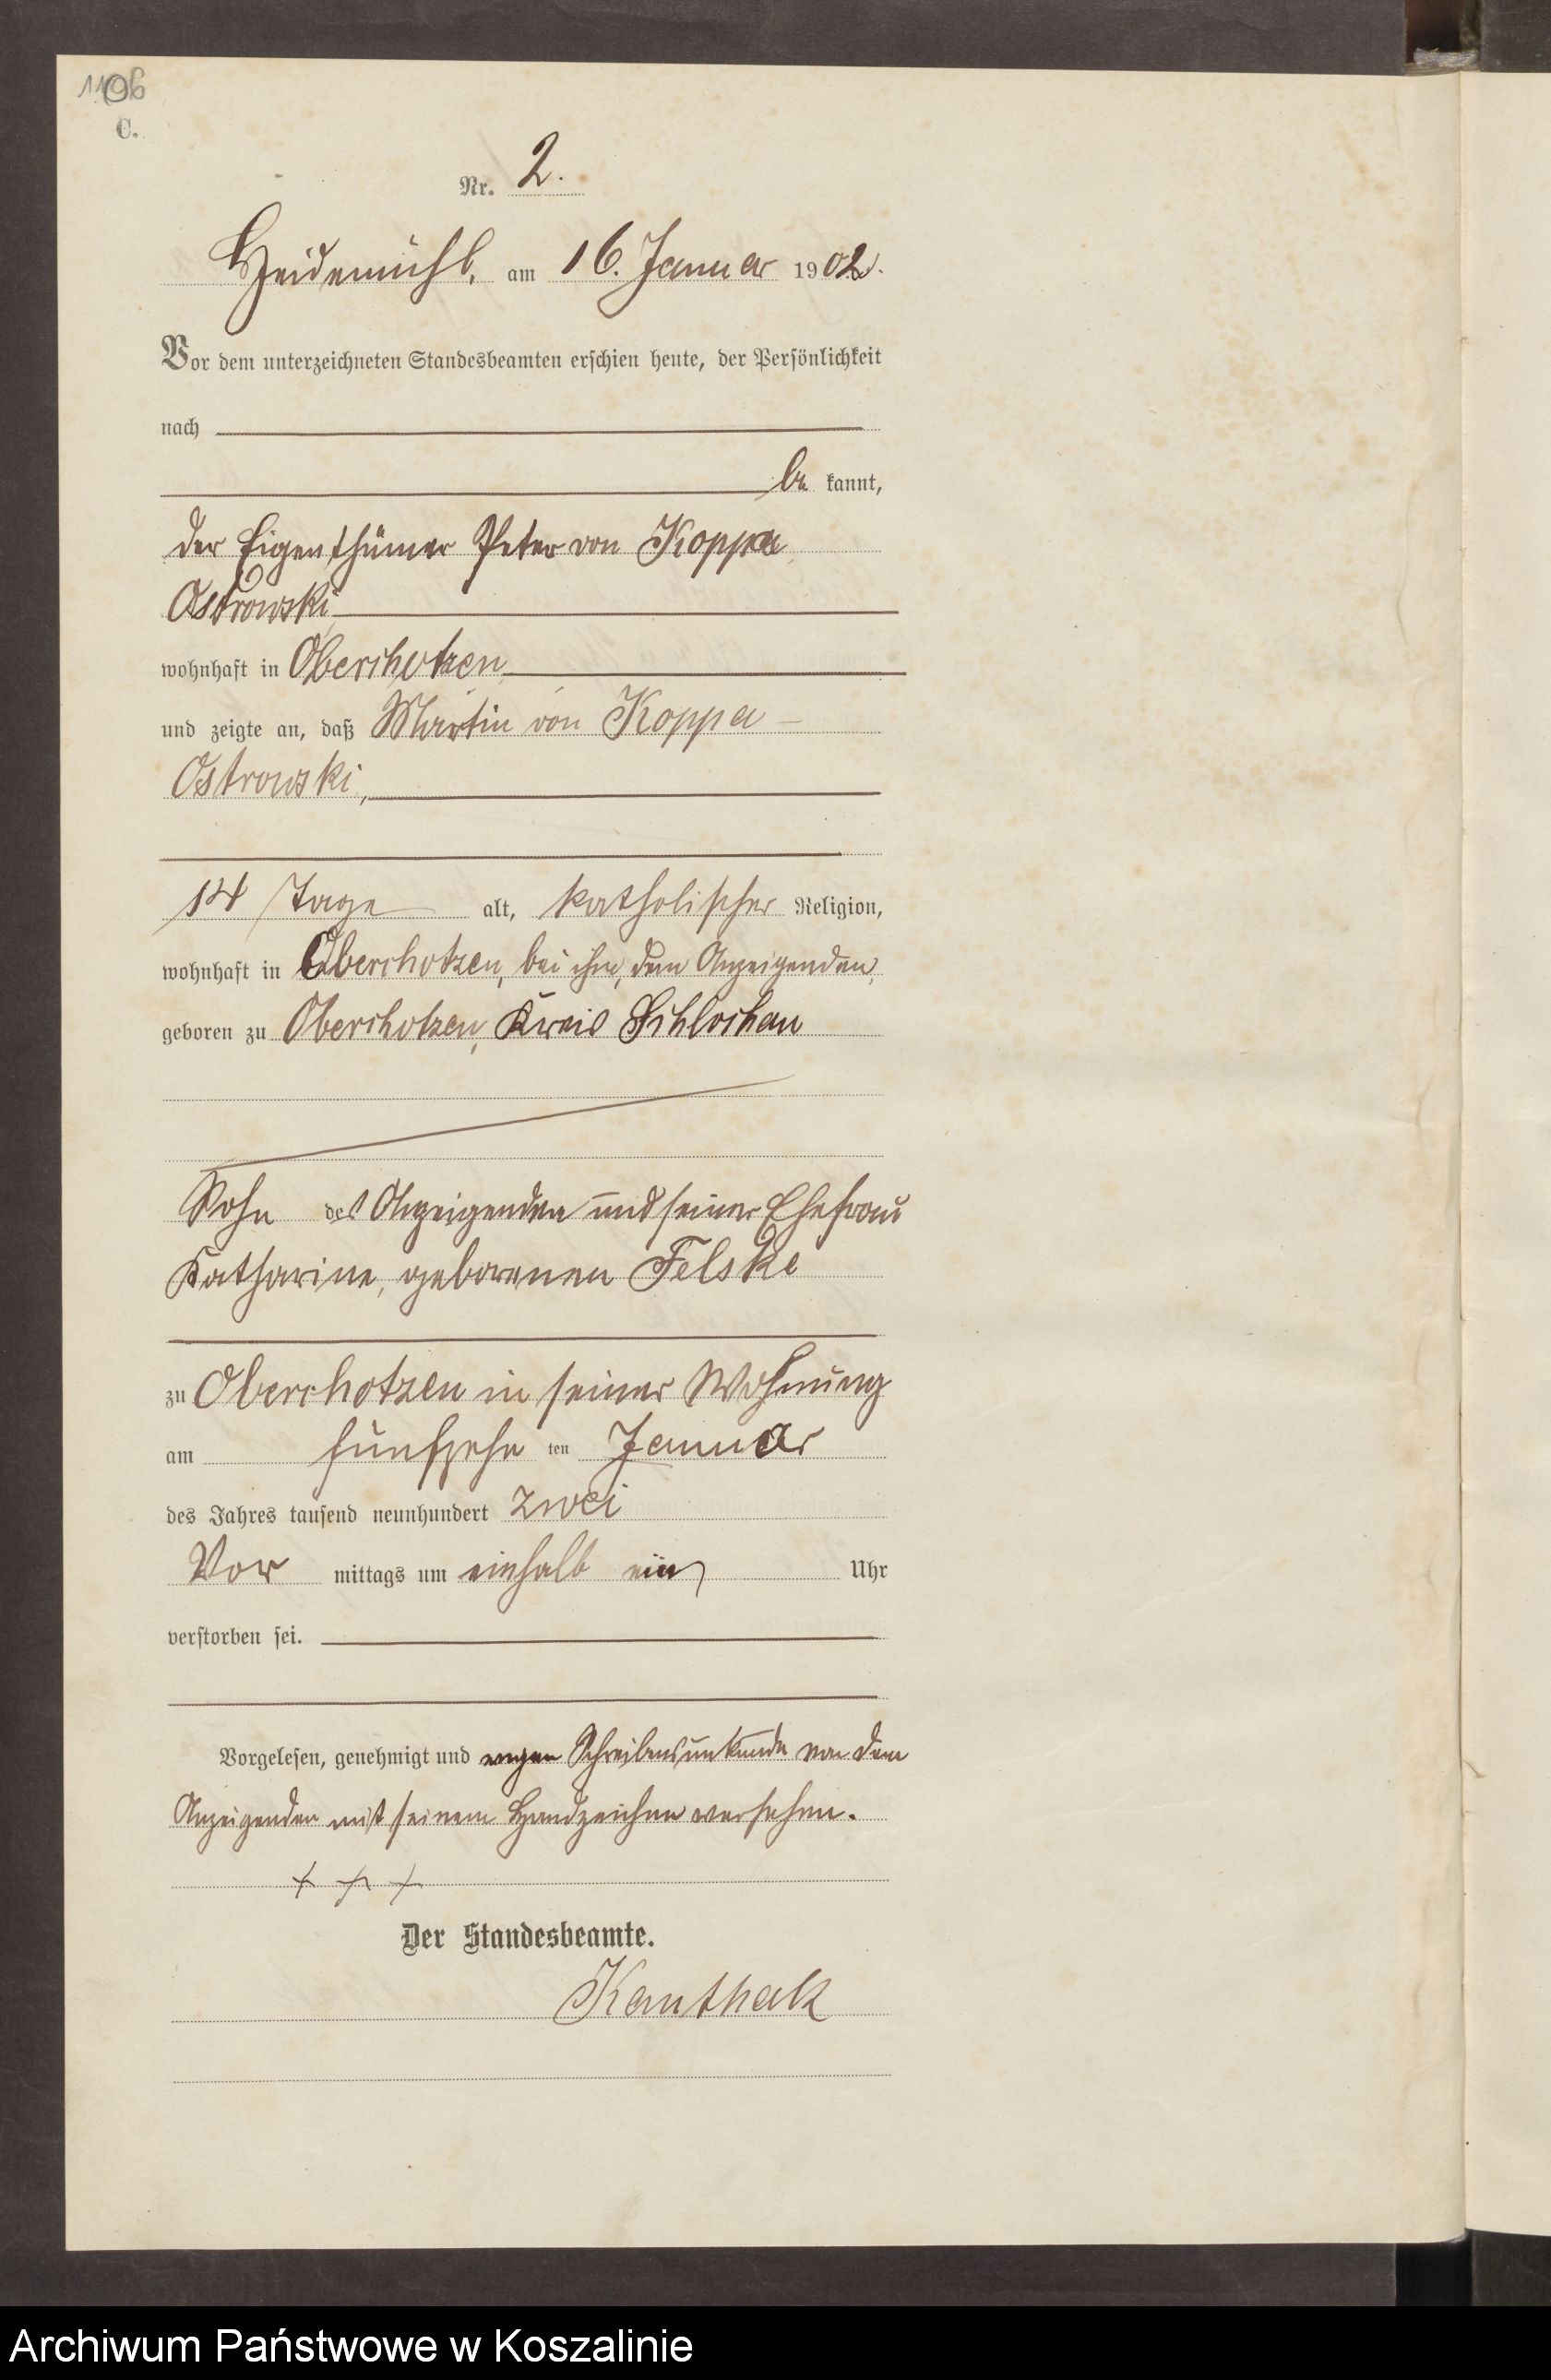 1106
C.
Nr. 2.
Heidemühl, am 16. Januar 1902.
Vor dem unterzeichneten Standesbeamten erschien heute, der Persönlichkeit
nach
be kannt,
der Eigenthümer Peter von Koppa
Ostrowski,
wohnhaft in Oberchotzen,
und zeigte an, daß Martin von Koppa –
Ostrowski,
14 Tage alt, katholischer Religion,
wohnhaft in Oberchotzen, bei ihm, dem Anzeigenden,
geboren zu Oberchotzen, Kreis Schlochau
Sohn des Anzeigenden und seiner Ehefrau
Katharine, geborenen Felske
zu Oberchotzen in seiner Wohnung
am fünfzehn ten Januar
des Jahres tausend neunhundert zwei
Vor mittags um einhalb ein Uhr
verstorben sei.
Vorgelesen, genehmigt und wegen Schreibensunkunde von dem
Anzeigenden mit seinem Handzeichen versehen.
+ + +
Der Standesbeamte.
Kanthak
Archiwum Państwowe w Koszalinie